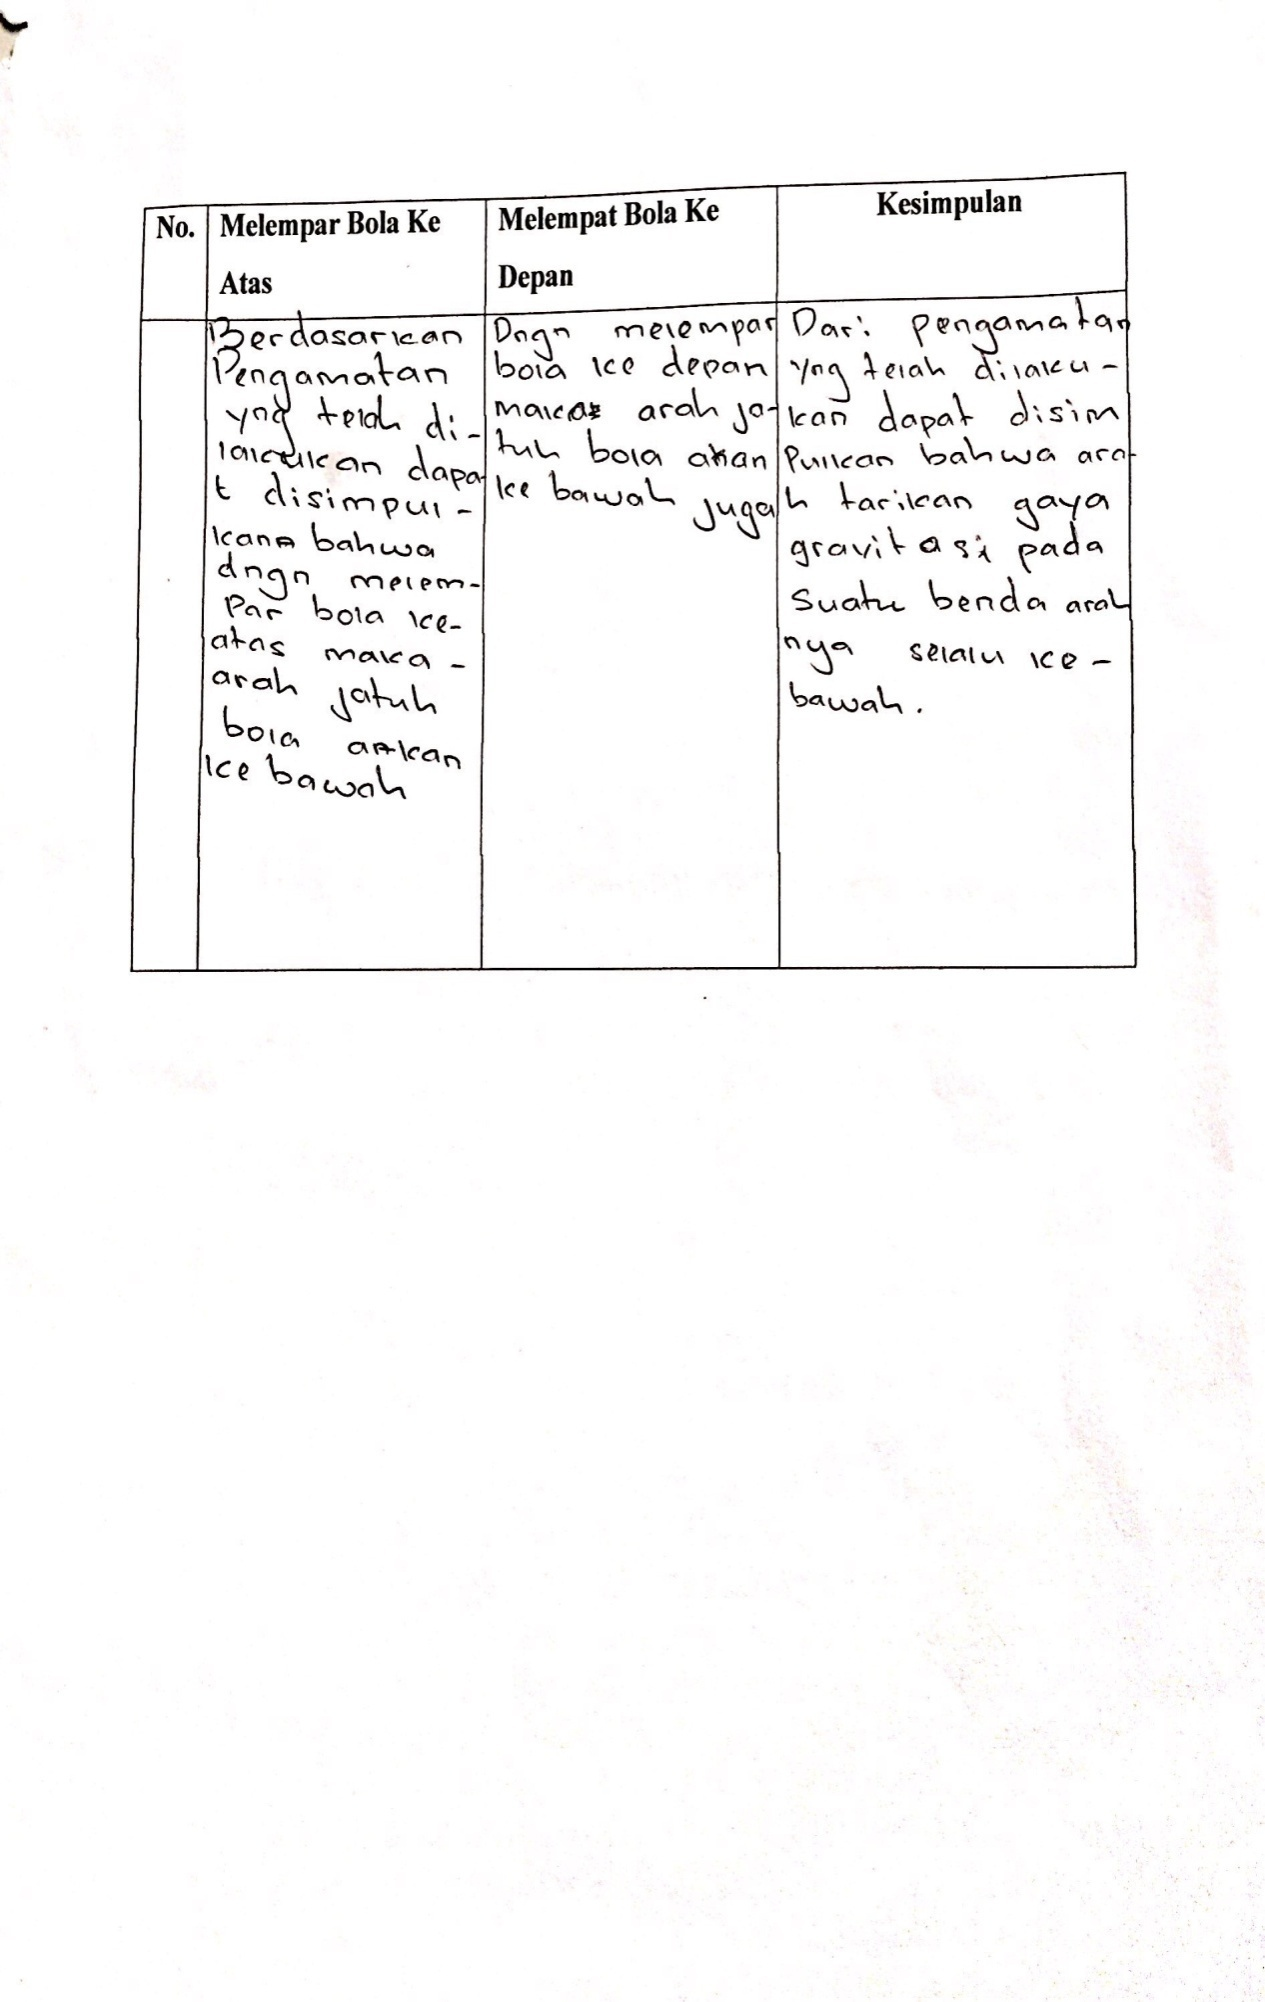 No.
Melempar Bola Ke
Atas
Melempat Bola Ke
Depan
Kesimpulan
Berdasarkan
Pengamatan
yng telah di-
lakukan dapa
t disimpul-
kana bahwa
dngn melem-
Par bola ke-
atas maka-
arah jatuh
bola akan
ke bawah
Dngn melempar
bola ke depan
maka arah ja-
tuh bola akan
ke bawah juga
Dari pengamatan
yng telah dilaku-
kan dapat disim
Pulkan bahwa ara-
h tarikan gaya
gravitasi pada
Suatu benda arah
nya selalu ke-
bawah.